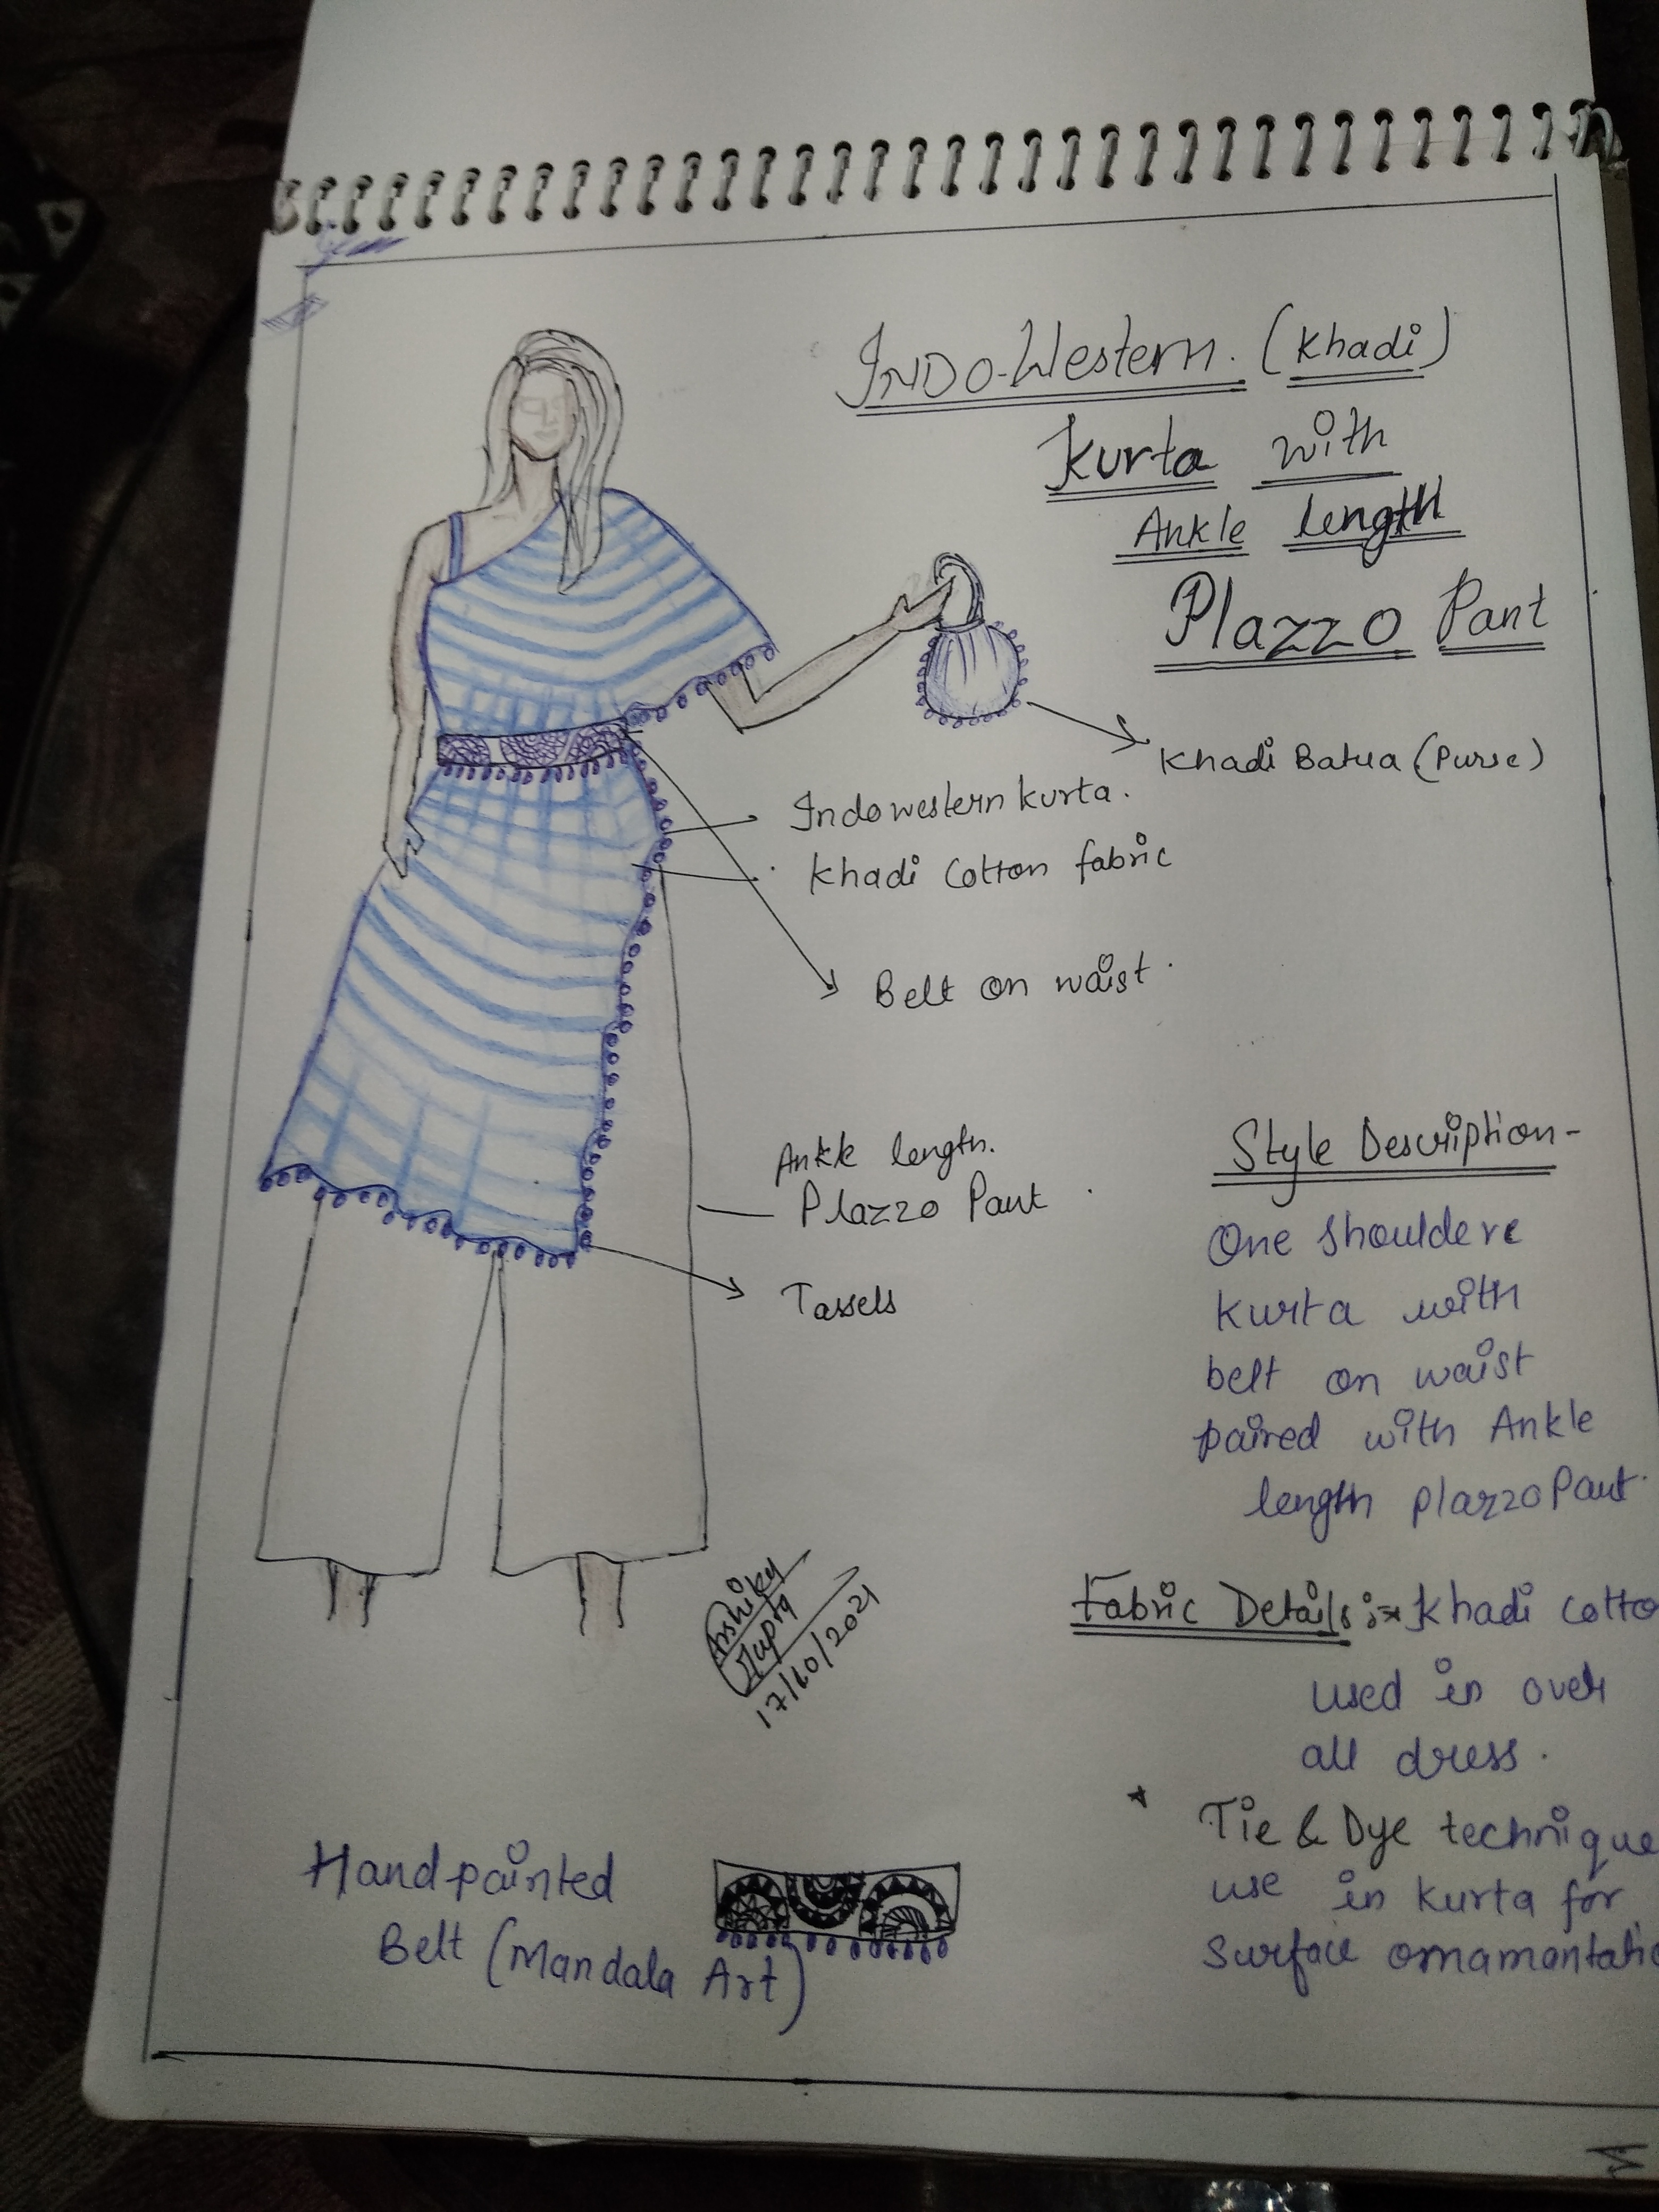 INDO-Western. (Khadi)
Kurta with
Ankle length
Plazzo Pant
Khadi Batua (Purse)
Indowestern kurta.
Khadi Cotton fabric
Belt on waist.
Ankle length.
Plazzo Pant
Tassels
Style Description-
One shouldere
kurta with
belt on waist
paired with Ankle
length plazzo Pant.
Fabric Details :- Khadi cotto
used in over
all dress.
* Tie & Dye technique
use in kurta for
surface ornamantatio
Gupta
17/10/2021
Hand painted
Belt (Mandala Art)